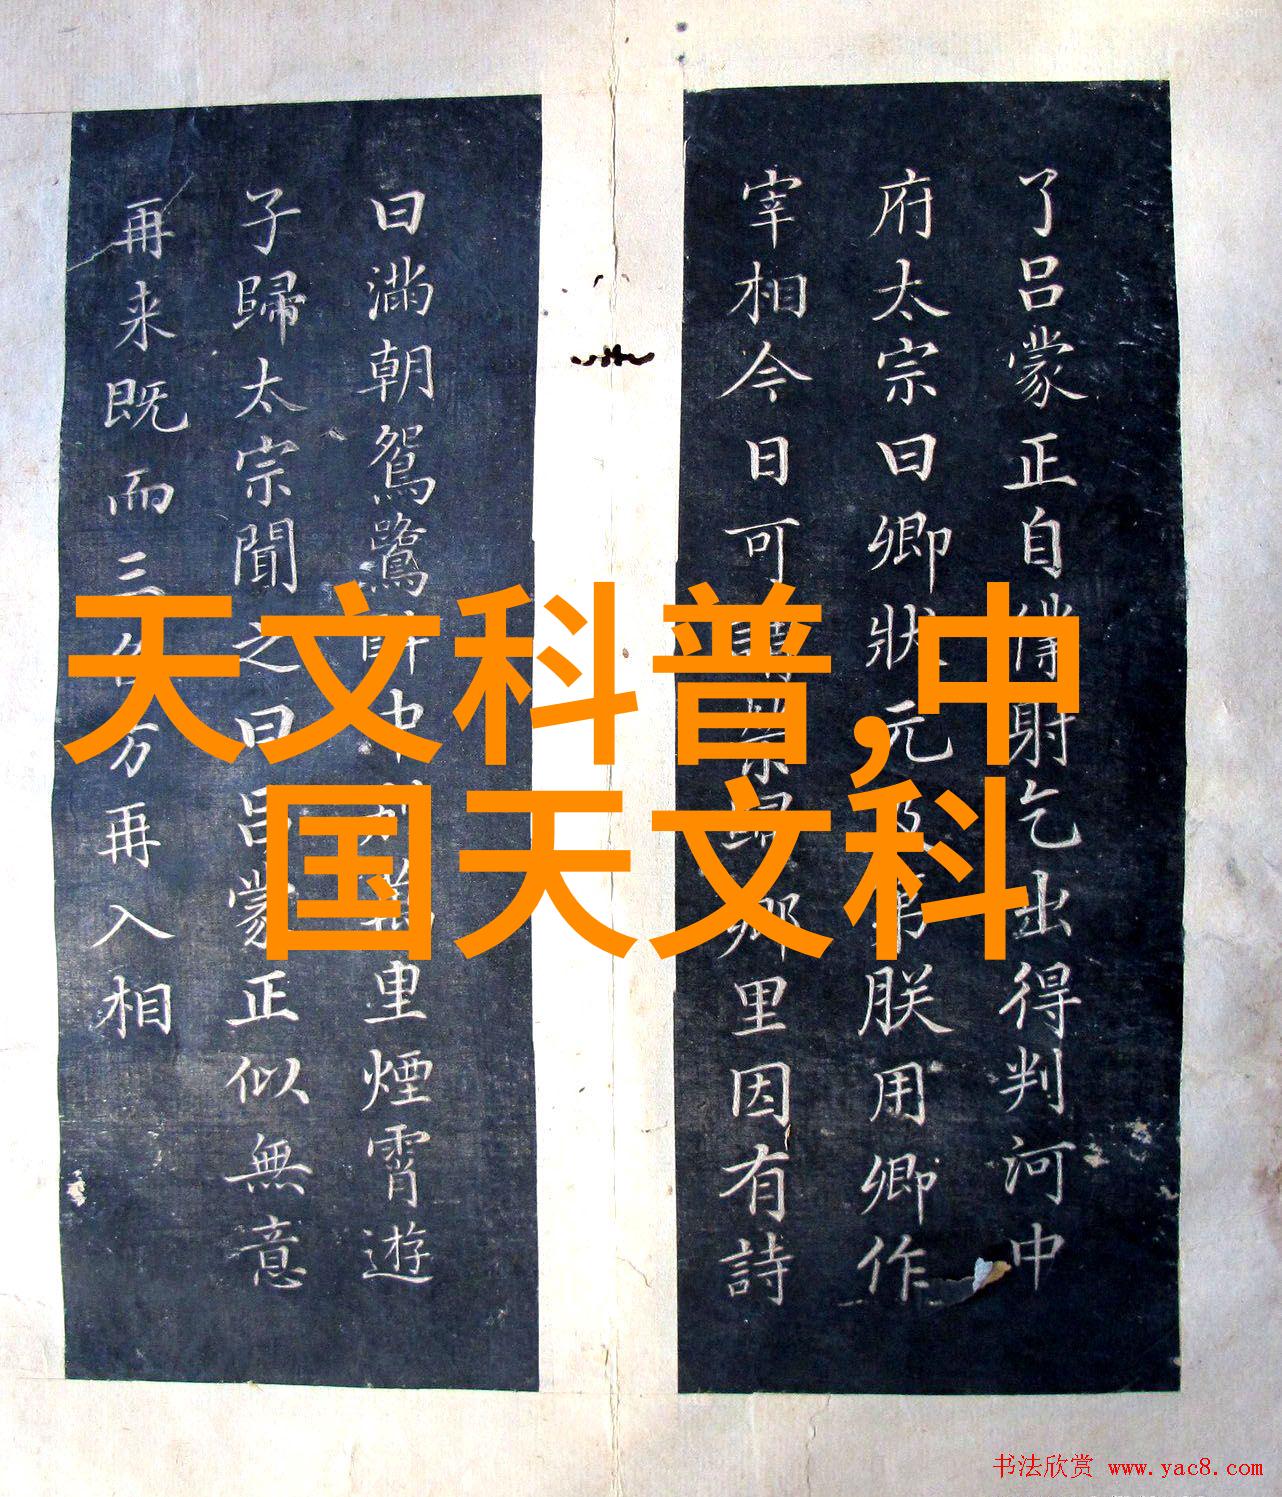 了吕蒙正自僕射乞出得判河中
府太宗曰卿狀元及第朕用卿作
宰相今日可謂榮歸鄉里因有詩
曰滿朝鴛鷺醉中別萬里煙霄遊
子歸太宗聞之曰吕蒙正似無意
再来既而三方再入相
天文科普,中
国天文科
书法欣赏 www.yac8.com